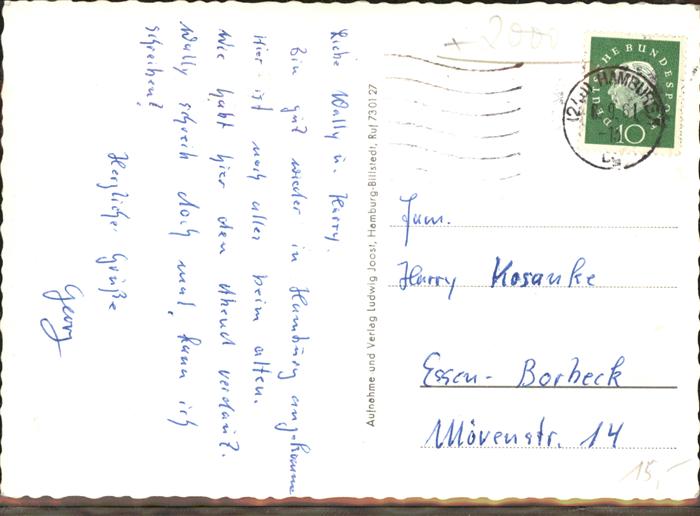 Liebe Wally u. Harry.
Bin gut wieder in Hamburg angekomme
Hier ist noch alles beim alten.
Wie habt hier den Abend verdaut?
Wally schreib doch mal, kann ich
schreiben?
Herzliche Grüße
Georg
Aufnahme und Verlag Ludwig Joost, Hamburg-Billstedt, Ruf 730127
+ 2000
DEUTSCHE BUNDESPOST
10
(24a) HAMBURG
9.61
Fam.
Harry Kosanke
Essen-Borbeck
Mövenstr. 14
15,-